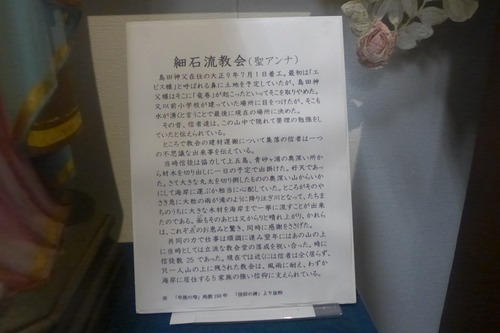 細石流教会(聖アンナ)
島田神父在任の大正9年7月1日着工。最初は「エ
ビス棚」と呼ばれる鼻に土地を予定していたが、島田神
父様はそこに「竜巻」が起こったといってそこを取りやめた。
又以前小学校が建っていた場所に目をつけたが、そこも
水が湧くと言うことで最後に現在の場所に決めた。
その昔、信者達は、この山中で隠れて管理の勉強をし
ていたと伝えられている。
ところで教会の建材運搬について集落の信者は一つ
の不思議な出来事を伝えている。
当時信徒は協力して上五島、青砂ヶ浦の奥深い所か
ら材木を切り出しに一日の予定で出掛けた。好天であっ
た。さて大きな丸太を切り倒したものの奥深い山からいか
にして海岸に運ぶか相当に心配していた。ところがそのや
さき急に大粒の雨が滝のように降り注ぎ川となって、たちま
ちのうちに大きな木材を海岸まで一挙に流すことが出来
たのである。雨もそのあとは又からりと晴れ上がり、かれら
は、これぞ天のお恵みと驚き、同時に感謝をささげた。
共同の力で仕事は順調に進み翌年にはあの山の上
に当時としては立派な教会堂の落成を祝い合った。時に
信徒数 25 であった。現在では近くには信者は全く居らず、
只一人山の上に残された教会は、風雨に耐え、わずか
海岸に居住する5家族の強い信仰に支えられている。
「年後の雫」「信仰の碑」より抜粋